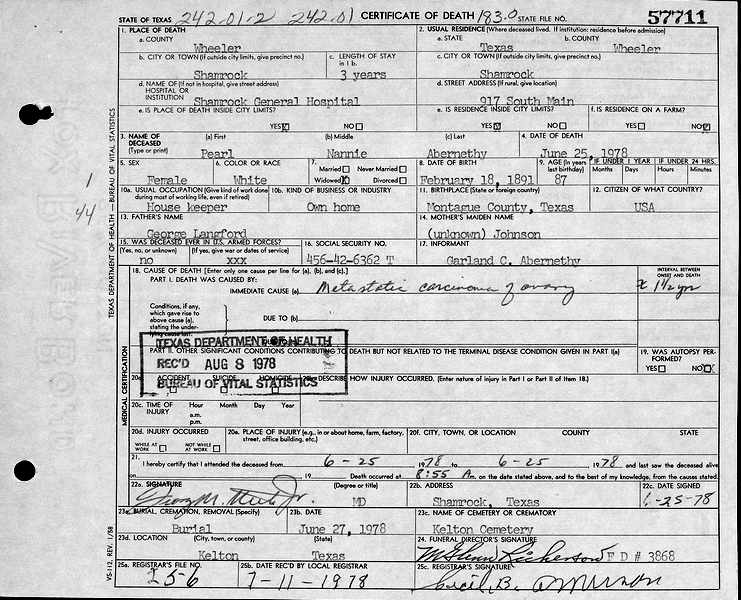 STATE OF TEXAS 242.01-2 242.01 CERTIFICATE OF DEATH 183.0 STATE FILE NO. 57711
1. PLACE OF DEATH
2. USUAL RESIDENCE (Where deceased lived. If institution: residence before admission)
a. COUNTY
a. STATE b. COUNTY
Wheeler Texas Wheeler
b. CITY OR TOWN (If outside city limits, give precinct no.) c. LENGTH OF STAY in 1 b. c. CITY OR TOWN (If outside city limits, give precinct no.)
Shamrock 3 years Shamrock
d. NAME OF (If not in hospital, give street address) HOSPITAL OR INSTITUTION d. STREET ADDRESS (If rural, give location)
Shamrock General Hospital 917 South Main
e. IS PLACE OF DEATH INSIDE CITY LIMITS? e. IS RESIDENCE INSIDE CITY LIMITS? f. IS RESIDENCE ON A FARM?
YES NO YES NO YES NO
3. NAME OF DECEASED (Type or print) (a) First (b) Middle (c) Last 4. DATE OF DEATH
Pearl Nannie Abernethy June 25, 1978
5. SEX 6. COLOR OR RACE 7. Married Never Married Widowed Divorced 8. DATE OF BIRTH 9. AGE (In years last birthday) IF UNDER 1 YEAR Months Days IF UNDER 24 HRS. Hours Minutes
Female White February 18, 1891 87
10a. USUAL OCCUPATION (Give kind of work done during most of working life, even if retired) 10b. KIND OF BUSINESS OR INDUSTRY 11. BIRTHPLACE (State or foreign country) 12. CITIZEN OF WHAT COUNTRY?
House keeper Own home Montague County, Texas USA
13. FATHER'S NAME 14. MOTHER'S MAIDEN NAME
George Langford (unknown) Johnson
15. WAS DECEASED EVER IN U.S. ARMED FORCES? (Yes, no, or unknown) (If yes, give war or dates of service) 16. SOCIAL SECURITY NO. 17. INFORMANT
no xxx 456-42-6362 T Garland C. Abernethy
18. CAUSE OF DEATH [Enter only one cause per line for (a), (b), and (c).] INTERVAL BETWEEN ONSET AND DEATH
PART I. DEATH WAS CAUSED BY:
IMMEDIATE CAUSE (a) Metastatic carcinoma of ovary 1½ yr
Conditions, if any, which gave rise to above cause (a), stating the underlying cause last. DUE TO (b)
PART II. OTHER SIGNIFICANT CONDITIONS CONTRIBUTING TO DEATH BUT NOT RELATED TO THE TERMINAL DISEASE CONDITION GIVEN IN PART I(a) 19. WAS AUTOPSY PERFORMED? YES NO
TEXAS DEPARTMENT OF HEALTH
REC'D AUG 8 1978
BUREAU OF VITAL STATISTICS
20a. ACCIDENT SUICIDE HOMICIDE 20b. DESCRIBE HOW INJURY OCCURRED. (Enter nature of injury in Part I or Part II of Item 18.)
20c. TIME OF INJURY Hour Month Day Year a.m. p.m.
20d. INJURY OCCURRED WHILE AT WORK NOT WHILE AT WORK 20e. PLACE OF INJURY (e.g., in or about home, farm, factory, street, office building, etc.) 20f. CITY, TOWN, OR LOCATION COUNTY STATE
21. I hereby certify that I attended the deceased from 6-25 1978 to 6-25 1978 and last saw the deceased alive
on 19 Death occurred at 8:55 A m. on the date stated above, and to the best of my knowledge, from the causes stated.
22a. SIGNATURE (Degree or title) 22b. ADDRESS 22c. DATE SIGNED
MD Shamrock, Texas 6-25-78
23a. BURIAL, CREMATION, REMOVAL (Specify) 23b. DATE 23c. NAME OF CEMETERY OR CREMATORY
Burial June 27, 1978 Kelton Cemetery
23d. LOCATION (City, town, or county) (State) 24. FUNERAL DIRECTOR'S SIGNATURE
Kelton Texas Richerson F D # 3868
25a. REGISTRAR'S FILE NO. 25b. DATE REC'D BY LOCAL REGISTRAR 25c. REGISTRAR'S SIGNATURE
7-11-1978 Cecil B.
TEXAS DEPARTMENT OF HEALTH — BUREAU OF VITAL STATISTICS
MEDICAL CERTIFICATION
VS-112, REV. 1/58
1
44